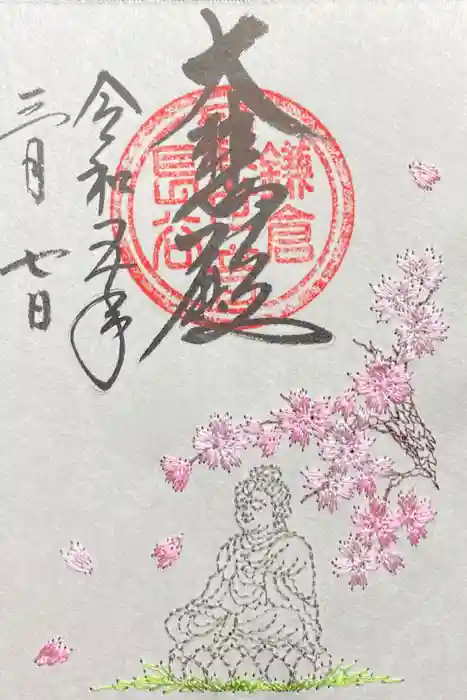 大悲殿
鎌倉
長谷
令和五年
三月七日